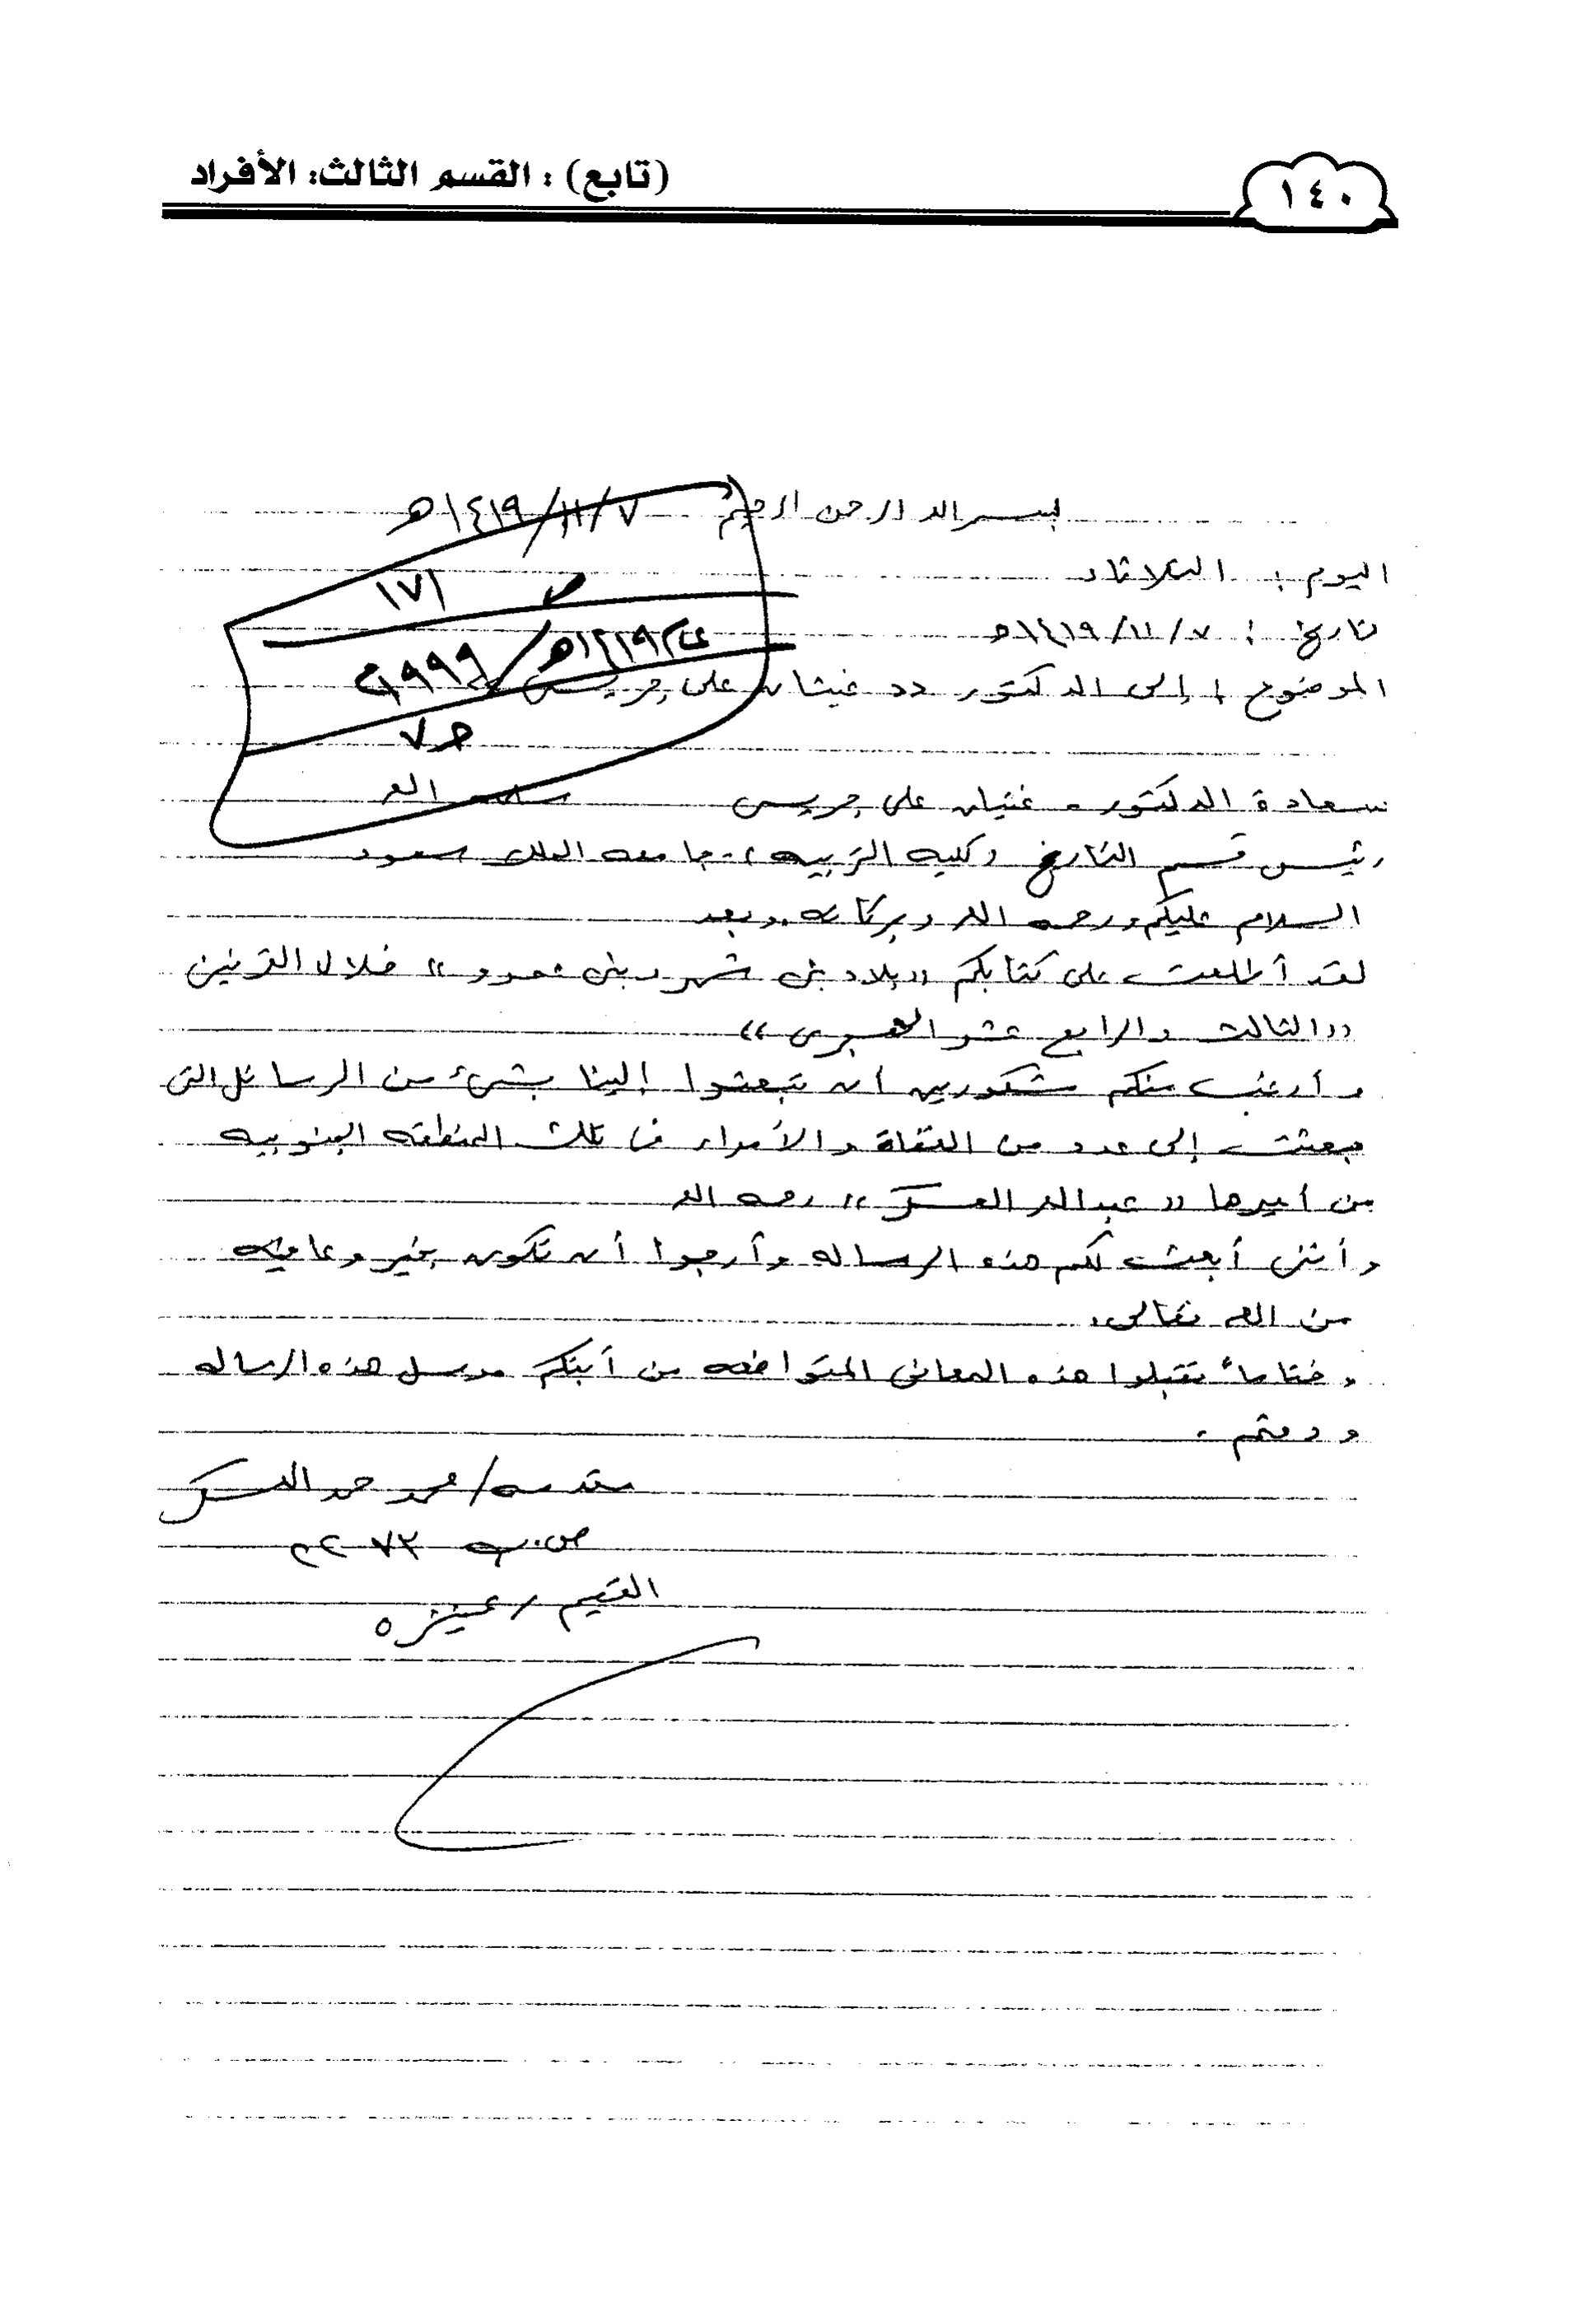 ١٤٠
(تابع) : القسم الثالث: الأفراد
بسم الله الرحمن الرحيم ٧/١١/١٤١٩هـ
اليوم : الثلاثاء
تاريخ : ٧/١١/١٤١٩هـ
الموضوع : إلى الدكتور غيثان على جريس
ص ١٧١
١٤١٩هـ/١٩٩٩م
ص٧
سعادة الدكتور - غثيان على جريس سلمه الله
رئيس قسم التاريخ وكليه التربيه ، جامعه الملك سعود
السلام عليكم ورحمه الله وبركاته .. وبعد
لقد أطلعت على كتابكم «بلاد بنى شهر وبنى عمرو» خلال القرنين
«الثالث والرابع عشر الهجرى»
وأرغب منكم مشكورين ان تبعثوا الينا بشىء من الرسائل التى
بعثت إلى عدد من القضاة والأمراء فى تلك المنطقه الجنوبيه
من أميرها «عبدالله العسكر» رحمه الله
وأننى أبعث لكم هذه الرساله وأرجوا أن تكون بخير وعافيه
من الله تعالى.
وختاماً تقبلوا هذه المعانى المتواضعه من أبنكم مرسل هذه الرساله
ودمتم .
مقدمه/ محمد حمد العسكر
ص.ب ٢٠٧٣
القصيم / عنيزه